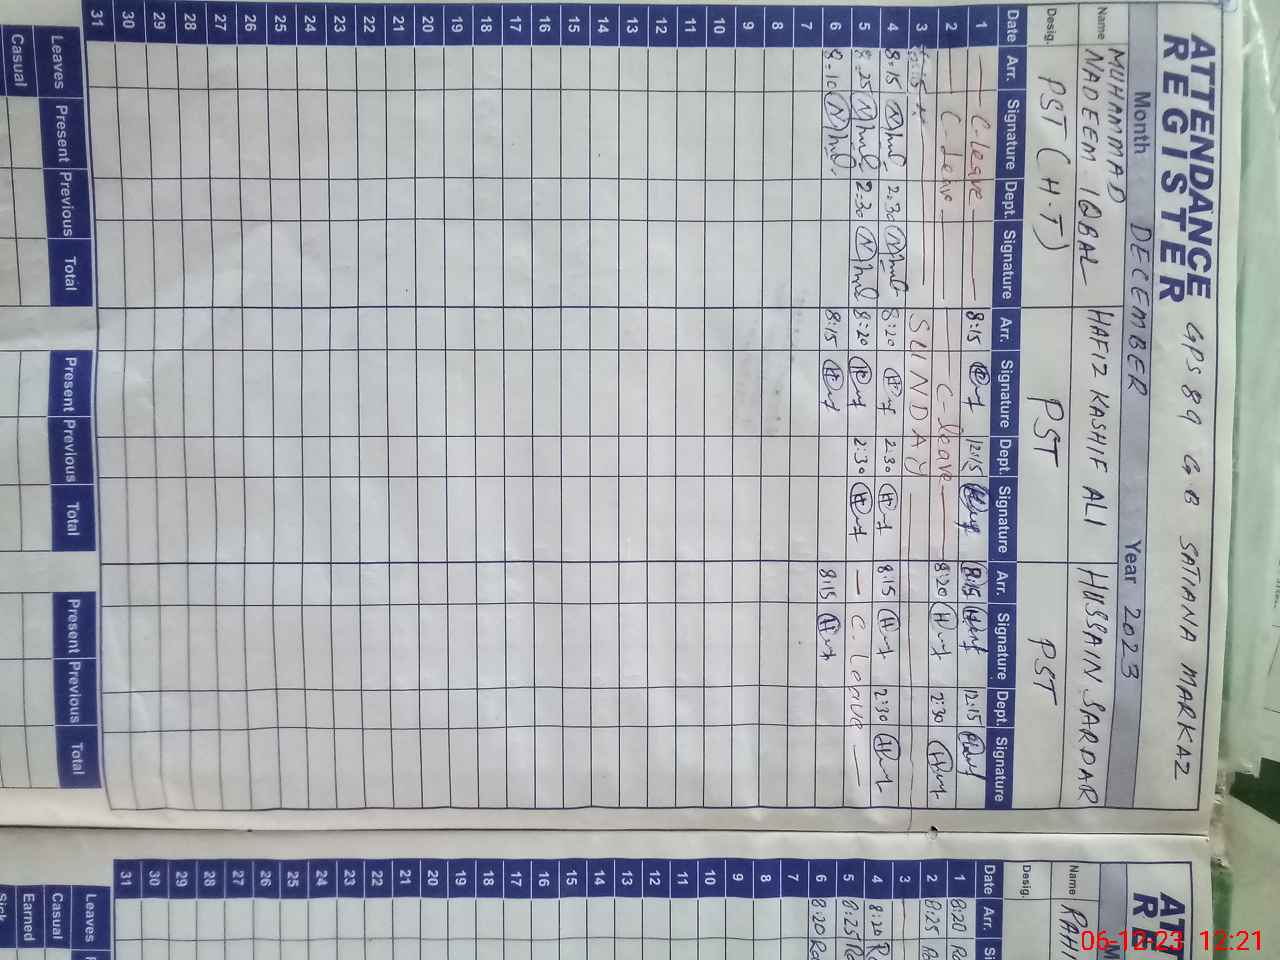 ATTENDANCE REGISTER GPS 89 G.B SATIANA MARKAZ
Month DECEMBER Year 2023
Name MUHAMMAD NADEEM IQBAL HAFIZ KASHIF ALI HUSSAIN SARDAR
Desig. PST (H.T) PST PST
Date Arr. Signature Dept. Signature Arr. Signature Dept. Signature Arr. Signature Dept. Signature
1 C-leave 8:15 12:15 8:15 12:15
2 C-leave C-leave 8:20 2:30
3 SUNDAY
4 8:15 2:30 8:20 2:30 8:15 2:30
5 8:25 2:30 8:20 2:30 C.leave
6 8:10 8:15 8:15
7
8
9
10
11
12
13
14
15
16
17
18
19
20
21
22
23
24
25
26
27
28
29
30
31
Leaves Present Previous Total Present Previous Total Present Previous Total
Casual
Name
Desig.
Date Arr.
1 8:20
2 8:25
3
4 8:20
5 8:25
6 8:20
7
8
9
10
11
12
13
14
15
16
17
18
19
20
21
22
23
24
25
26
27
28
29
30
31
Leaves
Casual
Earned
Sick
06-12-23 12:21